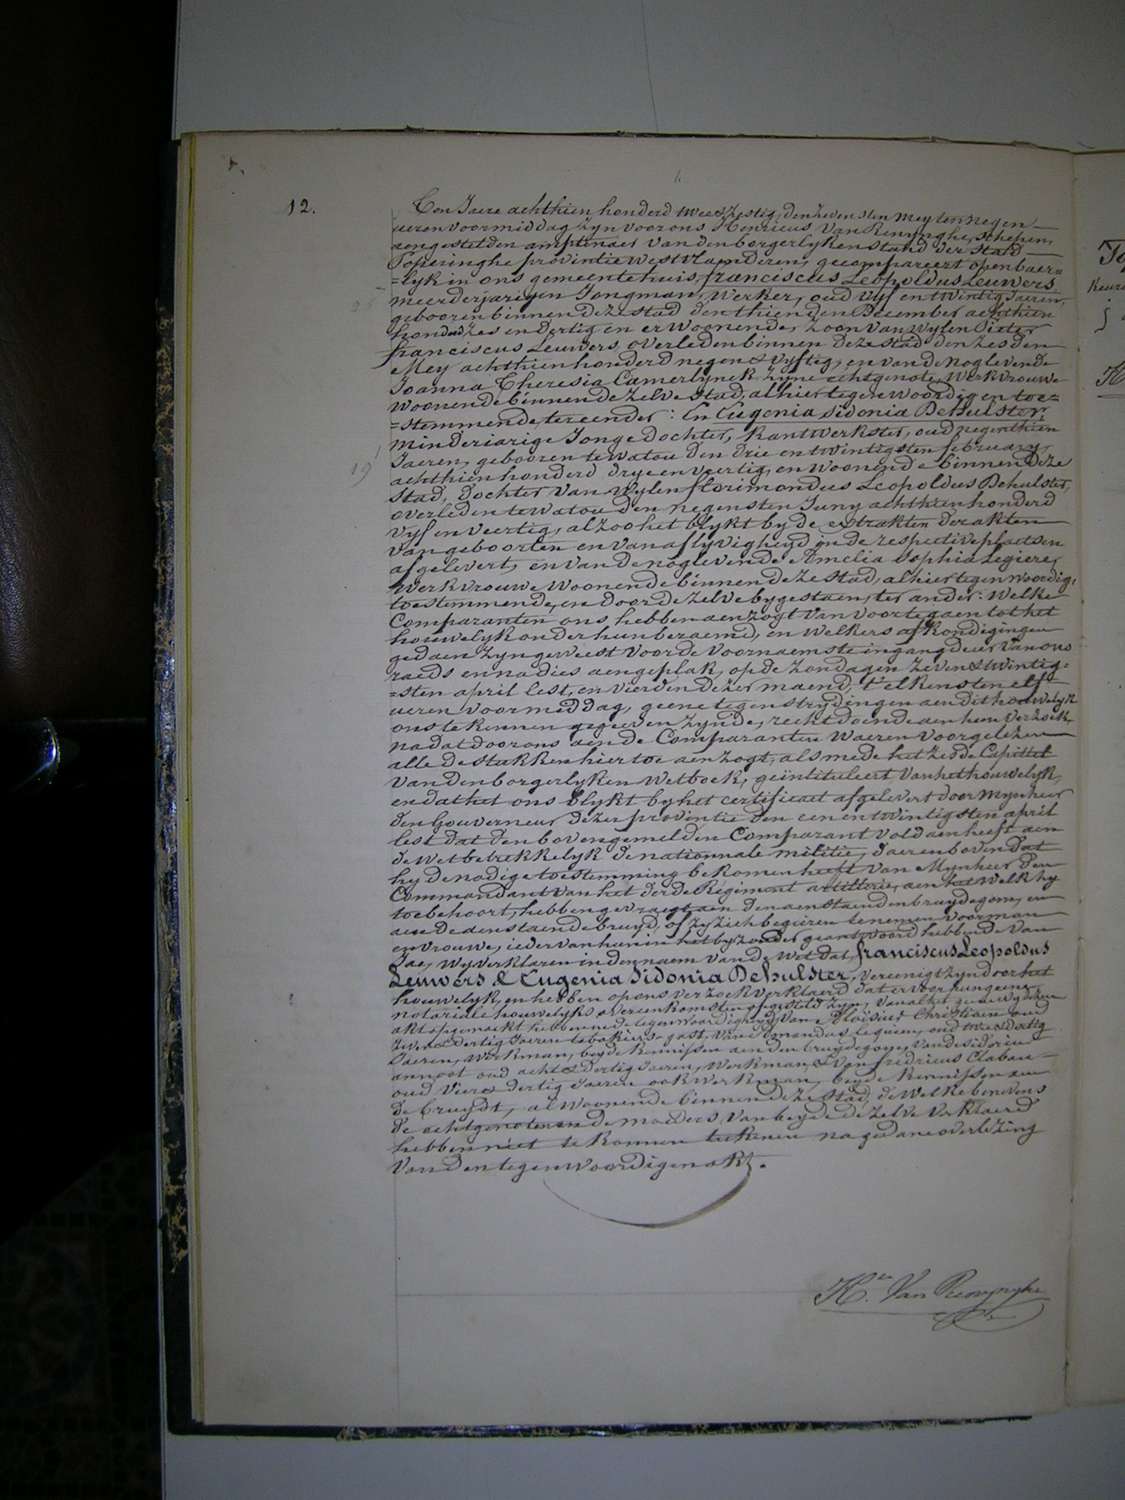 12.
Ten Jaere achthien honderd twee & zestig, den zevensten mey ten negen
ueren voormiddag zyn voor ons Henricus Van Renynghe, Schepen,
aengestelden amptenaer van den borgerlyken stand der Stad
Poperinghe provintie Westvlaenderen, gecompareert openbaer=
=lyk in ons gemeentehuis, franciscus Leopoldus Leuwers
meerderjarigen Jongman, Werker, oud vyf en twintig Jaeren,
25
gebooren binnen deze stad den thienden December achthien
honderd zes en dertig en er woonende, zoon van wylen Pieter
franciscus Leuwers, overleden binnen deze stad den zesden
Mey achthien honderd negen & vyftig, en van de noglevende
Joanna Theresia Camerlynck zyne echtgenote, Werkvrouwe
woonende binnen de zelve stad, alhier tegenwoordig en toe=
=stemmende, ter eender: En Eugenia Sidonia Dehulster,
minderjarige Jonge Dochter, kantwerkster, oud negenthien
19
Jaeren, gebooren te Watou den drie en twintigsten february
achthien honderd drye en veertig, en woonende binnen deze
stad, dochter van wylen florimondus Leopoldus Dehulster,
overleden te Watou den negensten Juny achthien honderd
vyf en veertig, alzoo het blykt by de extrakten der akten
van geboorten en van aflyvigheyd in de respective plaetsen
afgelevert, en van de noglevende Amelia Sophia Legiere,
Werkvrouwe woonende binnen deze stad, alhier tegenwoordig,
toestemmende, en door de zelve bygestaen, ter ander: Welke
Comparanten ons hebben aenzogt van voortegaen tot het
houwelyk onder hun beraemd, en welkers afkondigingen
gedaen zyn geweest voor de voornaemste ingangdeur van ons
raeds en nadies aengeplak, op de zondagen zeven & twintig=
=sten april lest, en vierden dezer maend, t'elkens ten elf
ueren voormiddag, geene tegenstrydingen aen dit houwelyk
ons te kennen gegeeven zynde, recht doende aen hun verzoek,
nadat door ons aen de Comparanten waeren voorgelezen
alle de stukken hier toe aenzogt, als mede het zesde Capittel
van den borgerlyken Wetboek, geïntituleert van het houwelyk,
en dat het ons blykt by het certificaet afgelevert door Mynheer
den Gouverneur dezer provintie den eenentwintigsten april
lest dat den bovengemelden Comparant voldaen heeft aen
de Wet betrekkelyk de nationnale militie, daerenboven dat
hy de nodige toestemming bekomen heeft van Mynheer den
Commandant van het derde Regiment artillerie, aen het welk hy
toebehoort, hebben gevraegt aen den aenstaenden bruydegom, en
aen de aenstaende bruyd, of zy zich begeiren te nemen voor man
en vrouwe, ieder van hun in het byzonder geantwoord hebbende van
Jae, Wy verklaren in den naem van de Wet dat, franciscus Leopoldus
Leuwers & Eugenia Sidonia Dehulster, vereenigt zyn door het
houwelyk, en hebben op ons verzoek verklaerd dat er voor hun geene
notariele houwelyks overeenkomsten gesteld zyn, van al het gene wy dezen
akt opgemaekt hebben in de tegenwoordigheyd van Aloïsius Christiaen oud
zeven & dertig Jaeren tabakiers gast, van Edmondus Lequien, oud twee & dertig
Jaeren, Werkman, beyde kennissen aen den bruydegom, van desiderius
annoot oud acht & dertig Jaeren, Werkman, & van fredricus Clabau
oud vier & dertig Jaeren ook Werkman, beyde kennissen aen
de bruydt, al woonende binnen deze stad, de welke benevens
de echtgenoten en de moeders van beyde de zelve verklaerd
hebben niet te konnen teekenen na gedane overlezing
van den tegenwoordigen akt.
H.en Van Renynghe